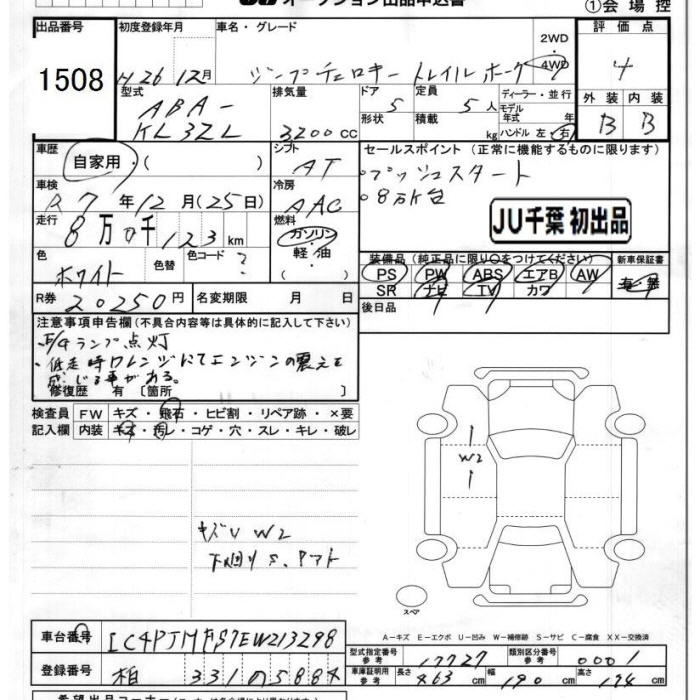 オークション出品申込書
①会場控
出品番号 初度登録年月 車名・グレード 2WD 4WD 評価点
1508
H26 12月 ジープチェロキー トレイルホーク 4
型式 排気量 ドア 定員 ディーラー・並行 外装 内装
ABA-
KL32L 3200cc 5 5人 モデル年式 年 B B
形状 積載 kg ハンドル 左・右
車歴 自家用・( ) シフト AT セールスポイント (正常に機能するものに限ります)
プッシュスタート
8万k台
車検 R7年12月(25日) 冷房 AAC
JU千葉 初出品
走行 8万0千123km 燃料 ガソリン・軽油・( )
色 ホワイト 色替 色コード ?
装備品 (純正品に限り○をつけてください) 新車保証書
PS PW ABS エアB AW 有・無
SR ナビ TV カワ
R券 20250円 名変期限 月 日 後日品
注意事項申告欄(不具合内容等は具体的に記入して下さい)
ランプ点灯
・低走時Dレンジにてエンジンの震えを
感じる事がある。
修復歴 有 〔箇所 〕
検査員 FW キズ・飛石・ヒビ割・リペア跡・×要
記入欄 内装 キズ・汚レ・コゲ・穴・スレ・キレ・破レ
W2
キズU W2
下回りS、
スペア
A-キズ E-エクボ U-凹み W-補修跡 S-サビ C-腐食 XX-交換済
車台番号 1C4PJMFS7EW213298
型式指定番号 参考 17727 類別区分番号 参考 0001
登録番号 柏 331 の 5884
車庫証明用 参考 長さ 463cm 幅 190cm 高さ 174cm
希望出品コーナー